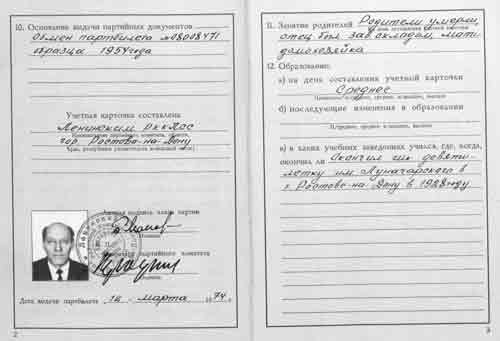 10. Основание выдачи партийных документов
Обмен партбилета №08008471
образца 1954 года
Учетная карточка составлена
Ленинским РК КПСС
гор. Ростова-на-Дону
Личная подпись члена партии
Секретарь партийного комитета
Дата выдачи партбилета 12 марта 1974 г.
2
11. Занятие родителей Родители умерли,
отец был зав. складом, мать
домохозяйка
12. Образование:
а) на день составления учетной карточки
Среднее
(Начальное, среднее, высшее)
б) последующие изменения в образовании
в) в каких учебных заведениях учился, где, когда,
окончил ли Окончил девяти-
летку им. Луначарского в
г. Ростове-на-Дону в 1928 году
3